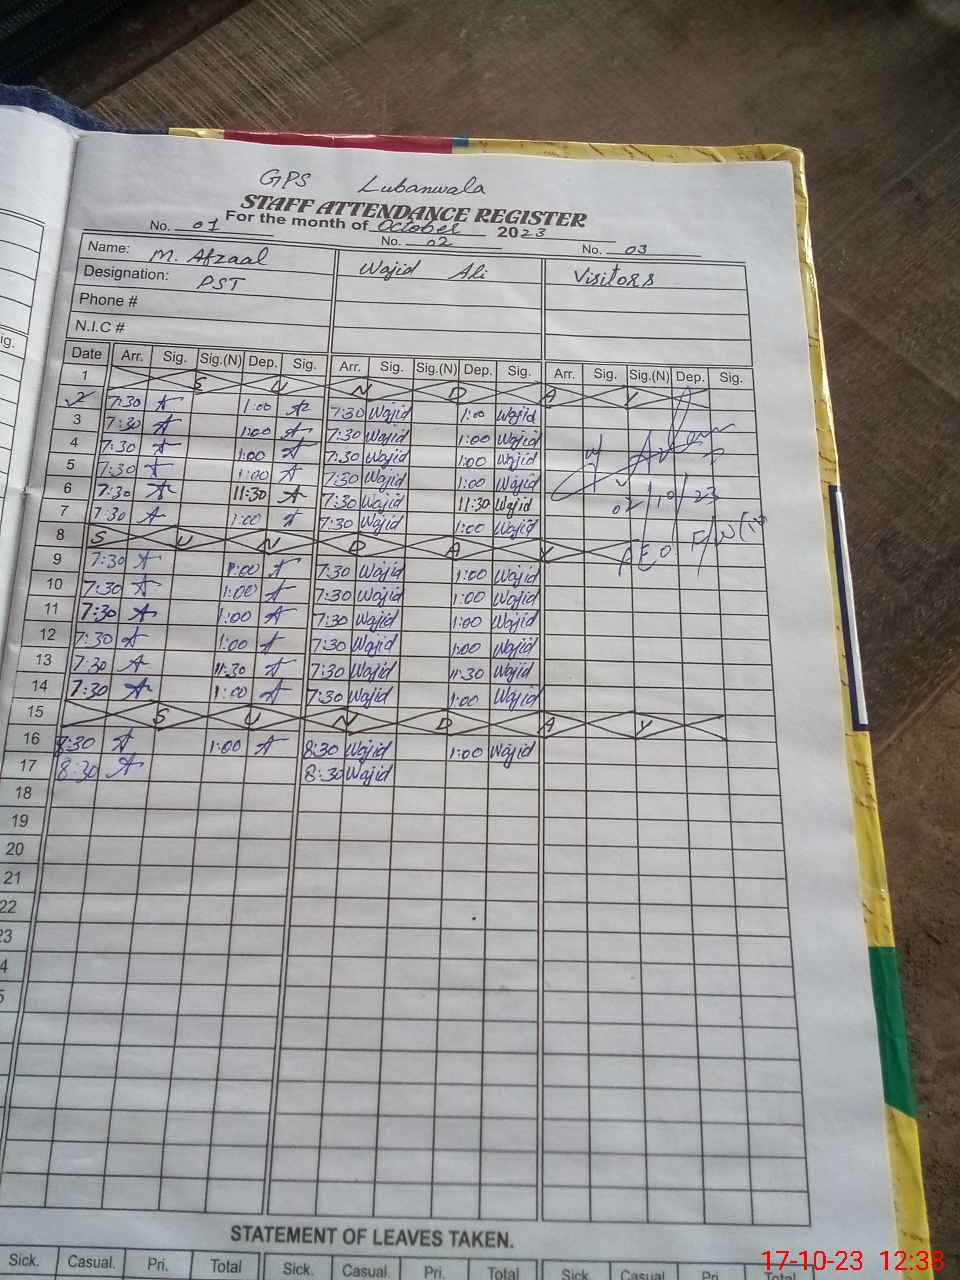 GPS Lubanwala
STAFF ATTENDANCE REGISTER
For the month of October 2023
No. 01 No. 02 No. 03
Name: M. Afzaal Wajid Ali Visitors
Designation: PST
Phone #
N.I.C #
Date Arr. Sig. Sig.(N) Dep. Sig. Arr. Sig. Sig.(N) Dep. Sig. Arr. Sig. Sig.(N) Dep. Sig.
1 S U N D A Y
2 7:30 A 1:00 A 7:30 Wajid 1:00 Wajid
3 7:30 A 1:00 A 7:30 Wajid 1:00 Wajid
4 7:30 A 1:00 A 7:30 Wajid 1:00 Wajid
5 7:30 A 1:00 A 7:30 Wajid 1:00 Wajid
6 7:30 A 11:30 A 7:30 Wajid 11:30 Wajid 02/10/23
7 7:30 A 1:00 A 7:30 Wajid 1:00 Wajid
8 S U N D A Y
9 7:30 A 1:00 A 7:30 Wajid 1:00 Wajid
10 7:30 A 1:00 A 7:30 Wajid 1:00 Wajid
11 7:30 A 1:00 A 7:30 Wajid 1:00 Wajid
12 7:30 A 1:00 A 7:30 Wajid 1:00 Wajid
13 7:30 A 11:30 A 7:30 Wajid 11:30 Wajid
14 7:30 A 1:00 A 7:30 Wajid 1:00 Wajid
15 S U N D A Y
16 8:30 A 1:00 A 8:30 Wajid 1:00 Wajid
17 8:30 A 8:30 Wajid
18
19
20
21
22
23
4
5
STATEMENT OF LEAVES TAKEN.
Sick. Casual. Pri. Total Sick. Casual. Pri. Total Sick. Casual. Pri. Total
17-10-23 12:38